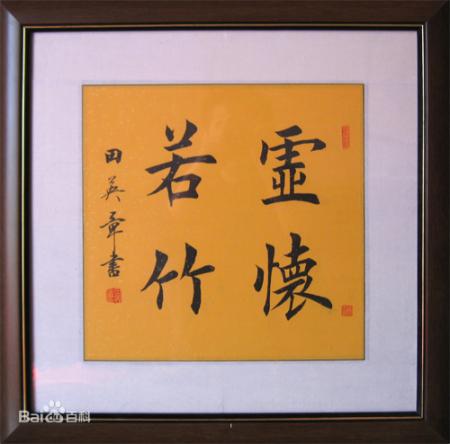 虛懷
若竹
田英章書
Bai百科